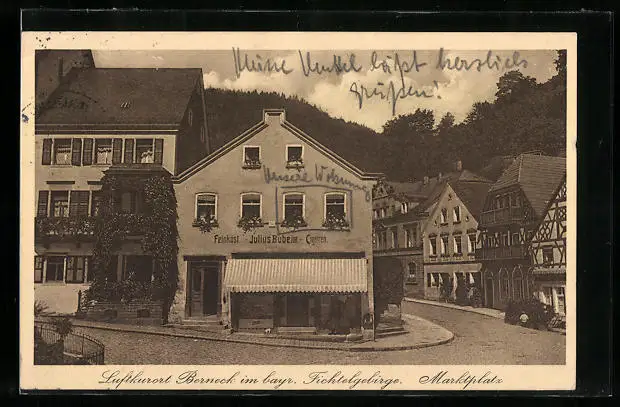 Meine Muttel läßt herzlich
grüßen!
Unsere Wohnung
Feinkost Julius Bübe Cigarren
Luftkurort Berneck im bayr. Fichtelgebirge. Marktplatz